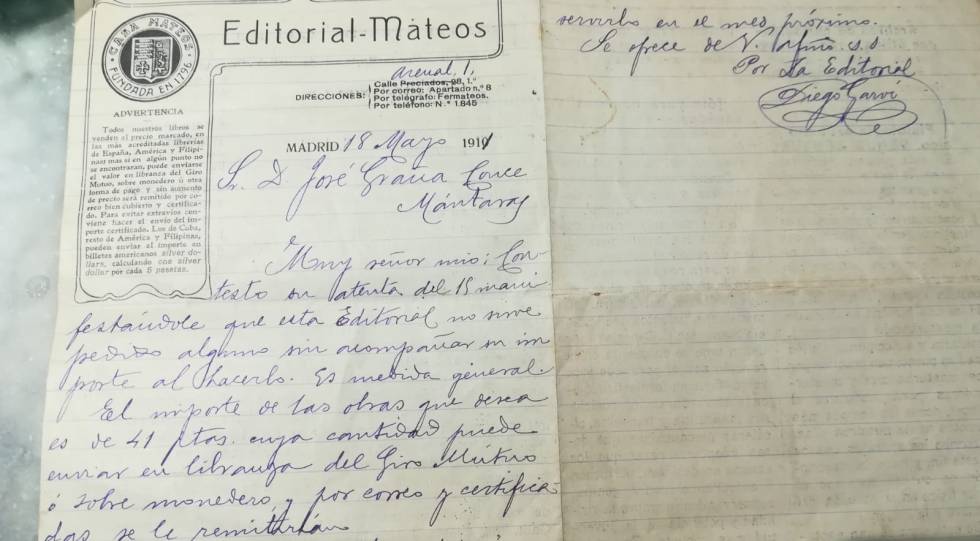 CASA MATEOS
FUNDADA EN 1796
Editorial-Mateos
ADVERTENCIA
Todos nuestros libros se
venden al precio marcado, en
las mas acreditadas librerias
de España, América y Filipi-
nas: mas si en algún punto no
se encontraran, puede enviarse
el valor en libranza del Giro
Mutuo, sobre monedero ú otra
forma de pago y sin aumento
de precio será remitido por co-
rreo bien cubierto y certifica-
do. Para evitar extravios con-
viene hacer el envío del im-
porte certificado. Los de Cuba,
resto de América y Filipinas,
pueden enviar el importe en
billetes americanos silver do-
llars, calculando one silver
dollar por cada 5 pesetas.
Arenal, 1,
DIRECCIONES:
Calle Preciados, 98, 1.º
Por correo: Apartado n.º 8
Por telégrafo: Fermateos.
Por teléfono: N.º 1.845
MADRID 18 Mayo 1911
Sr. D. José Gracia
Muy señor mio: Con
testo su atenta del 15 mani
festándole que esta Editorial no sirve
pedido alguno sin acompañar su im
porte al hacerlo. Es medida general.
El importe de las obras que desea
es de 41 ptas. cuya cantidad puede
enviar en libranza del Giro Mútuo
ó sobre monedero, y por correo y certifica
das se le remitirán
servirlo en el mes próximo.
Se ofrece de V. afmo. s. s.
Por La Editorial
Diego Garví